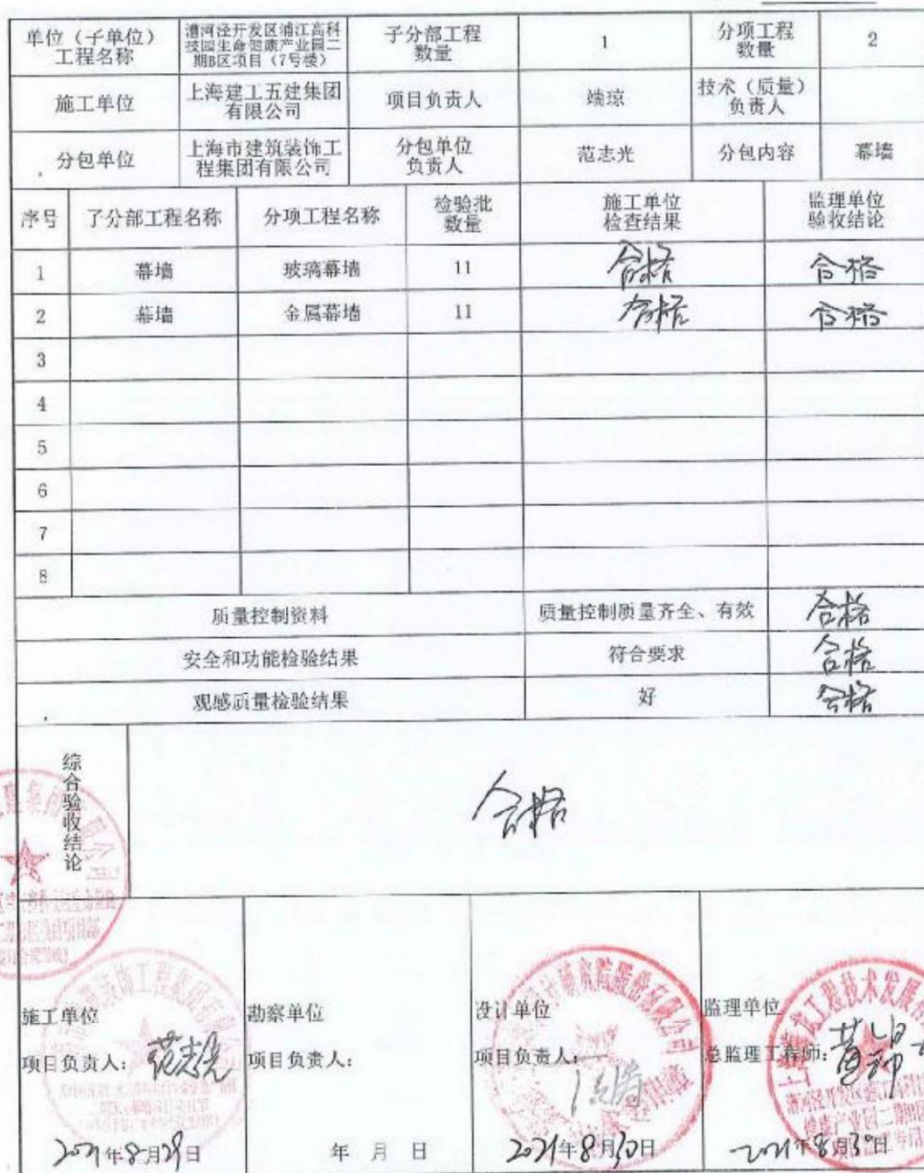 单位（子单位）
工程名称
漕河泾开发区浦江高科
技园生命健康产业园二
期B区项目（7号楼）
子分部工程
数量
1
分项工程
数量
2
施工单位
上海建工五建集团
有限公司
项目负责人
端琼
技术（质量）
负责人
分包单位
上海市建筑装饰工
程集团有限公司
分包单位
负责人
范志光
分包内容
幕墙
序号
子分部工程名称
分项工程名称
检验批
数量
施工单位
检查结果
监理单位
验收结论
1
幕墙
玻璃幕墙
11
合格
合格
2
幕墙
金属幕墙
11
合格
合格
3
4
5
6
7
8
质量控制资料
质量控制质量齐全、有效
合格
安全和功能检验结果
符合要求
合格
观感质量检验结果
好
合格
综合验收结论
合格
施工单位
项目负责人：范志光
2021年8月29日
勘察单位
项目负责人：
年 月 日
设计单位
项目负责人：
2021年8月30日
监理单位
总监理工程师：
2021年8月30日